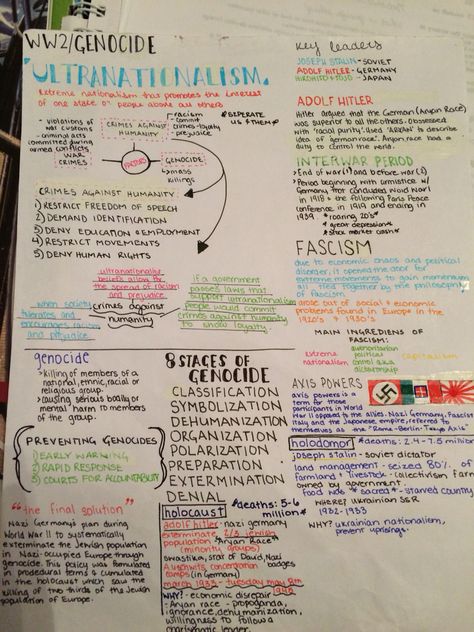 WW2/GENOCIDE
"ULTRANATIONALISM"
Extreme nationalism that promotes the interest
of one state or people above all others
- violations of
war customs
- criminal acts
committed during
armed conflicts
WAR
CRIMES
CRIMES AGAINST
HUMANITY
FACTORS
- racism
- commit
crimes - loyalty
- prejudice
GENOCIDE
↳ mass
killings
US & THEM
CRIMES AGAINST HUMANITY:
1) RESTRICT FREEDOM OF SPEECH
2) DEMAND IDENTIFICATION
3) DENY EDUCATION & EMPLOYMENT
4) RESTRICT MOVEMENTS
5) DENY HUMAN RIGHTS
ultranationalist
beliefs allow for
the spread of racism
and prejudice
when society
tolerates and
encourages racism
and prejudice
crimes against
humanity
if a government
passes laws that
support ultranationalism
people would commit
crimes against humanity
to show loyalty
key leaders
JOSEPH STALIN - SOVIET
ADOLF HITLER - GERMANY
HIROHITO & TOJO - JAPAN
ADOLF HITLER
Hitler argued that the German (Aryan Race)
was superior to all others. Obsessed
with 'racial purity'. Used 'ARYAN' to describe
idea of german race. Aryan race had a
duty to control the world.
INTERWAR PERIOD
> End of war(1) and before war(2)
> Period beginning with armistice w/
Germany that concluded World War I
in 1918 & the following Paris Peace
Conference in 1919 and ending in
1939
* roaring 20's*
* great depression
* stock market crash*
FASCISM
due to economic chaos and political
disorder, it opened the door for
extreme movements to gain momentum
all tied together by the philosophy
of fascism.
arose out of social & economic
problems found in Europe in the
1920's & 1930's
MAIN INGREDIENS OF
FASCISM:
extreme
nationalism
authoritarian
political
control a.k.a
dictatorship
capitalism
genocide
> killing of members of a
national, ethnic, racial or
religious group
> causing serious bodily or
mental harm to members
of the group.
PREVENTING GENOCIDES
1) EARLY WARNING
2) RAPID RESPONSE
3) COURTS FOR ACCOUNTABILITY
"the final solution"
Nazi Germany's plan during
World War II to systematically
exterminate the Jewish population
in Nazi-occupied Europe through
genocide. This policy was formulated
in procedural terms & culminated
in the holocaust which saw the
killing of two thirds of the Jewish
population of Europe.
8 STAGES OF
GENOCIDE
CLASSIFICATION
SYMBOLIZATION
DEHUMANIZATION
ORGANIZATION
POLARIZATION
PREPARATION
EXTERMINATION
DENIAL
holocaust
#deaths: 5-6
million*
adolf hitler - nazi germany
exterminate 2/3 jewish
population "Aryan Race"
(minority groups)
swastika, star of David, Nazi
badges
Auschwitz, concentration
camps (in Germany)
march 1933 - tuesday may 8th
1945
WHY? - economic disrepair
- Aryan race - propaganda,
ignorance, dehumanization,
willingness to follow a
charismatic leader.
AXIS POWERS
axis powers is a
term for those
participants in World
War II opposed to the allies. Nazi Germany, Fascist
Italy and the Japanese empire, referred to
themselves as the "Rome-Berlin-Tokyo Axis"
holodomor
#deaths: 2.4 - 7.5 million
joseph stalin - soviet dictator
land management - seized 80% of
farmland & livestock - collectivism farm
owned by government.
food was *sacred* - starved country
WHERE? Ukrainian SSR
1932-1933
WHY? ukrainian nationalism,
prevent uprisings.